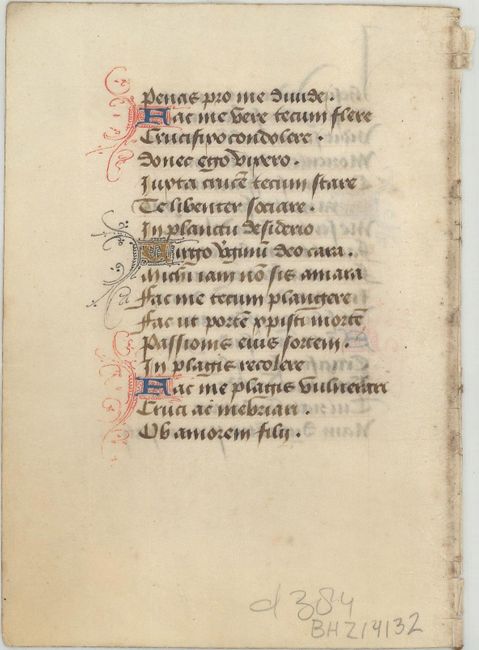 Penas pro me diuide.
Fac me vere tecum flere
Crucifixo condolere.
Donec ego vixero.
Juxta crucē tecum stare
Te libenter sociare.
In planctu desiderio
Uirgo v̄ginū deo cara.
Michi iam nō sis amara
Fac me tecum plangere
Fac ut portē xpisti mortē
Passionis eius sortem.
In plagis recolere
Fac me plagis vulnerari
Cruci ac inebriari.
Ob amorem filij.
d 384
BHZ14132